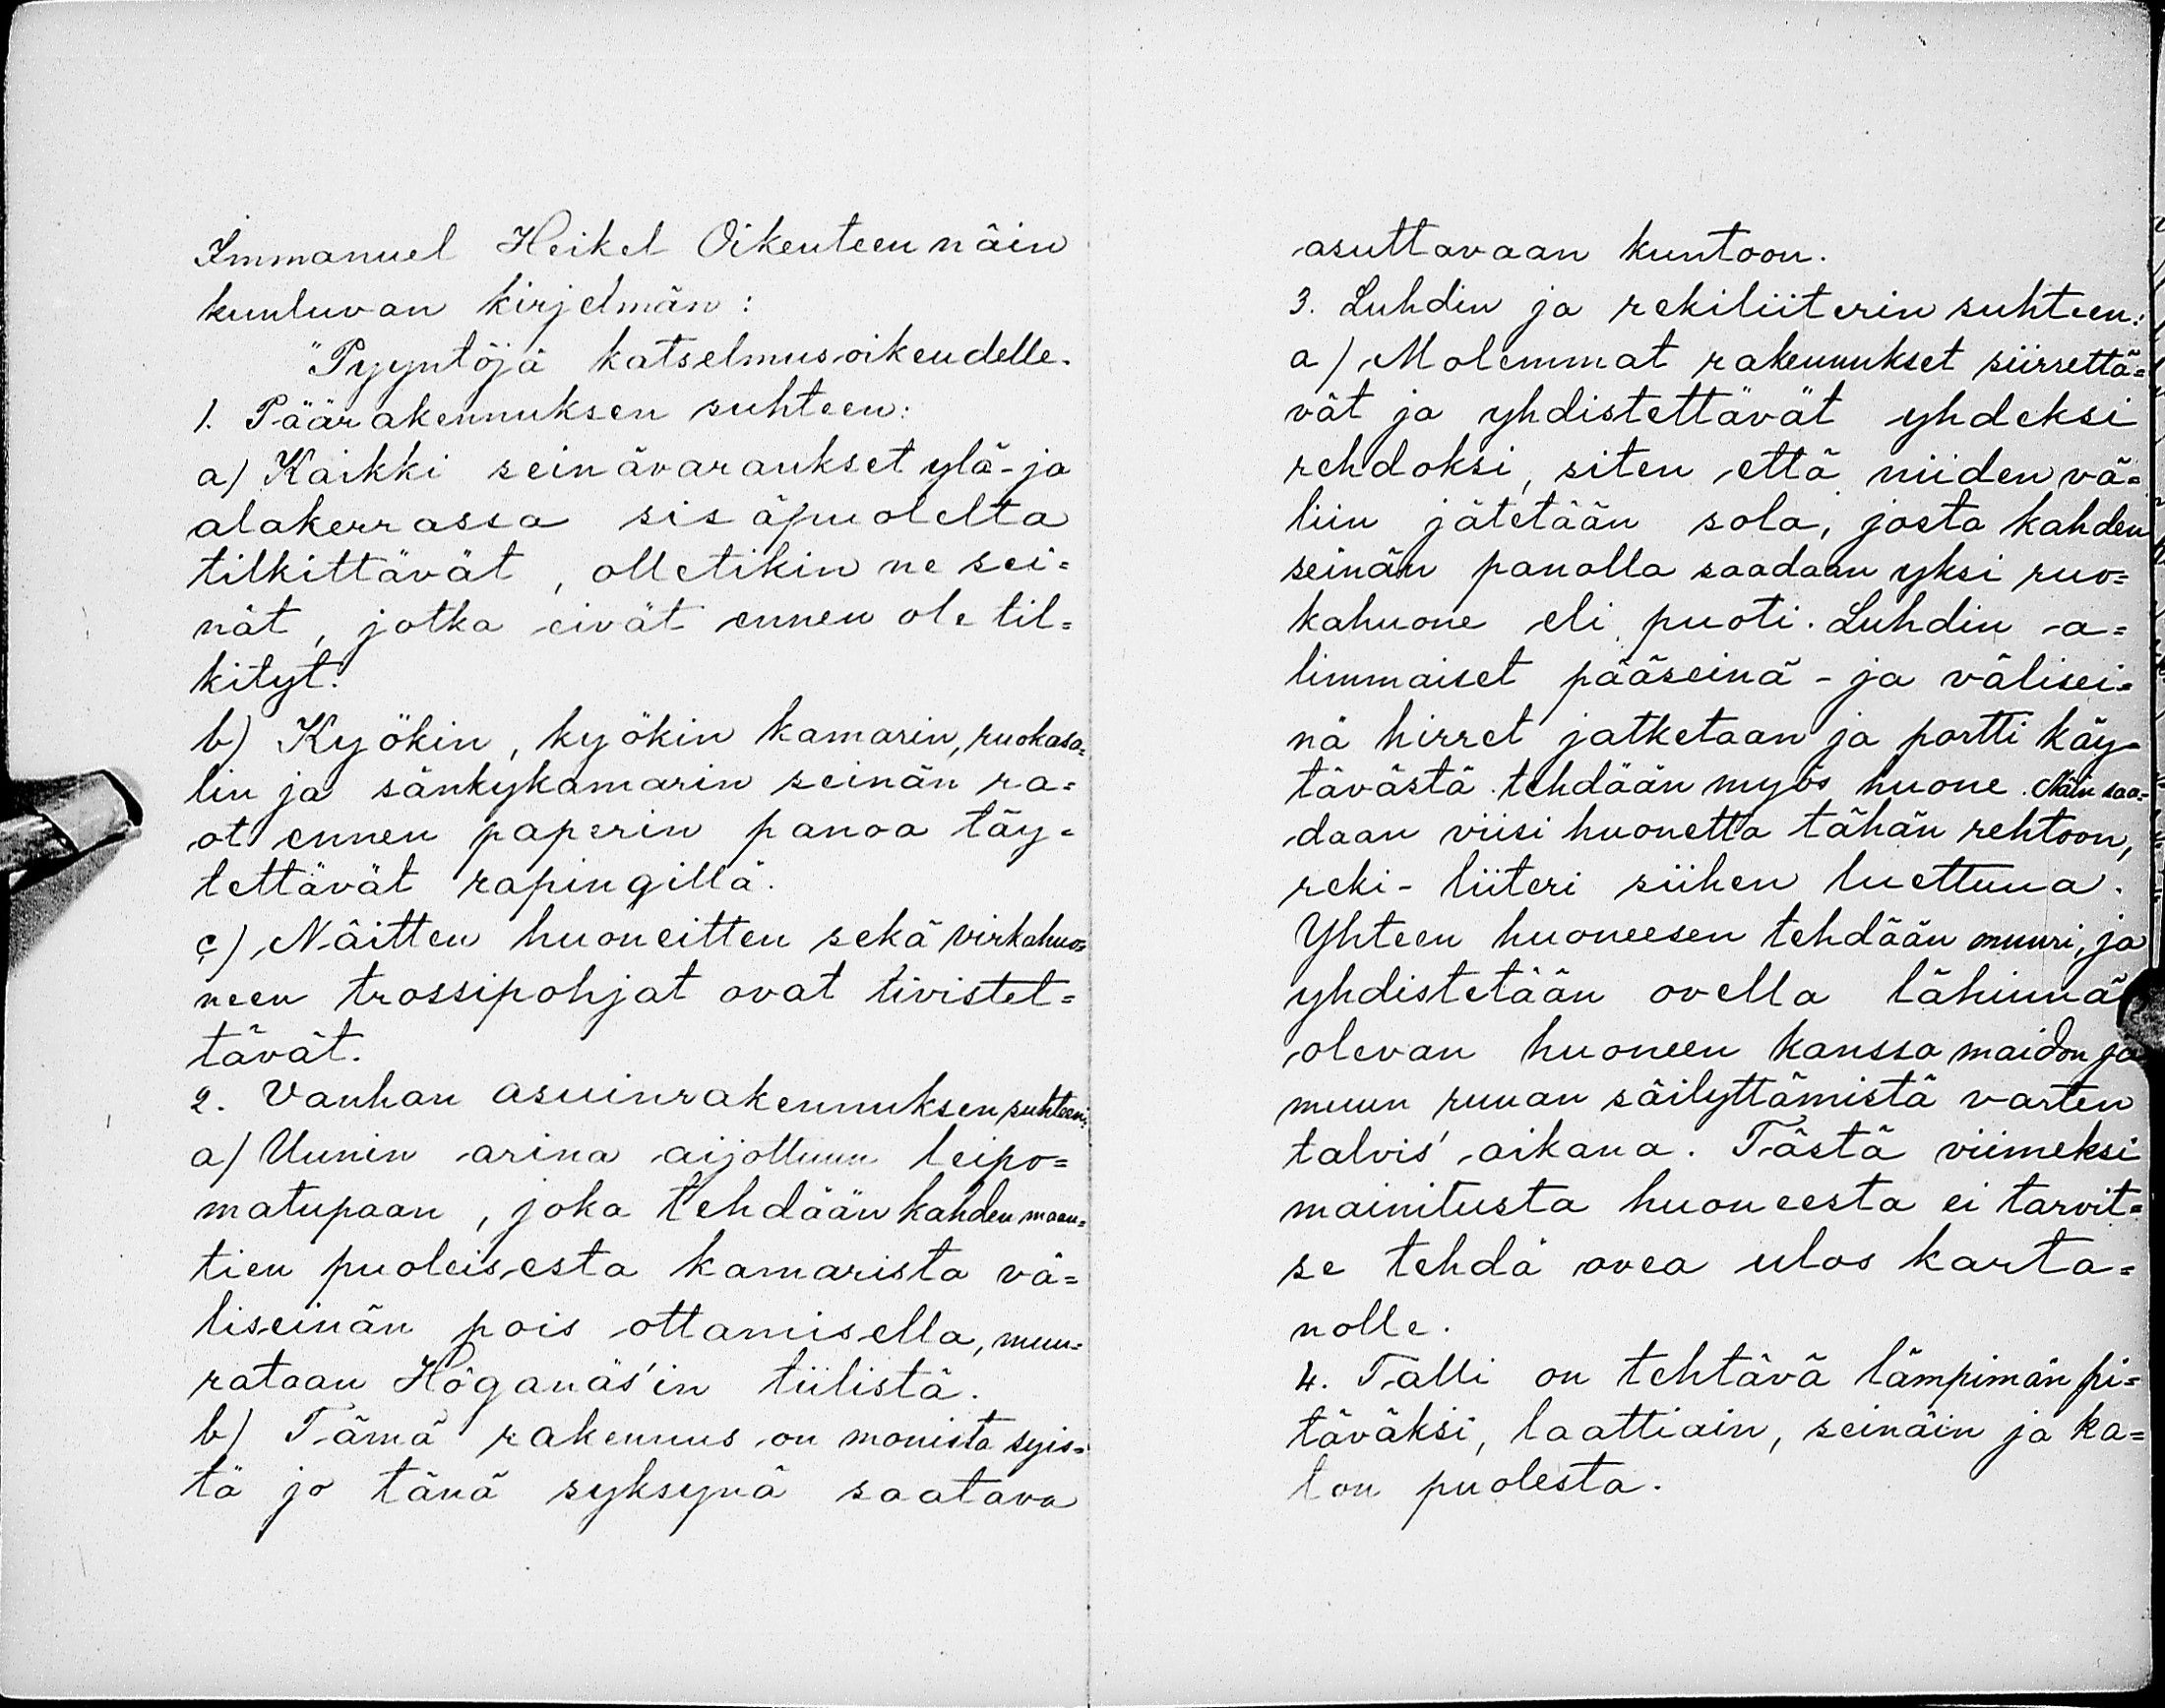 Immanuel Heikel Oikeuteen näin
kuuluvan kirjelmän:
"Pyyntöjä katselmusoikeudelle.
1. Päärakennuksen suhteen:
a) Kaikki seinävaraukset ylä- ja
alakerrassa sisäpuolelta
tilkittävät, olletikin ne sei=
nät, jotka eivät ennen ole til=
kityt.
b) Kyökin, kyökin kamarin, ruokasa=
lin ja sänkykamarin seinän ra=
ot ennen paperin panoa täy=
tettävät rapingillä.
c) Näitten huoneitten sekä virkahuo=
neen trossipohjat ovat tivistet=
tävät.
2. Vanhan asuinrakennuksen suhteen:
a) Uunin arina aijottuun leipo=
matupaan, joka tehdään kahden maan=
tien puoleisesta kamarista vä=
liseinän pois ottamisella, muu=
rataan Höganäs'in tiilistä.
b) Tämä rakennus on monista syis=
tä jo tänä syksynä saatava
asuttavaan kuntoon.
3. Luhdin ja rekiliiterin suhteen:
a) Molemmat rakennukset siirrettä=
vät ja yhdistettävät yhdeksi
rehdoksi, siten että niiden vä=
liin jätetään sola, josta kahden
seinän panolla saadaan yksi ruo=
kahuone eli puoti. Luhdin a=
limmaiset pääseinä- ja välisei=
nä hirret jatketaan ja portti käy=
tävästä tehdään myös huone. Näin saa=
daan viisi huonetta tähän rehtoon,
reki- liiteri siihen luettuna.
Yhteen huoneesen tehdään muuri, ja
yhdistetään ovella lähinnä
olevan huoneen kanssa maidon ja
muun ruuan säilyttämistä varten
talvis' aikana. Tästä viimeksi
mainitusta huoneesta ei tarvit=
se tehdä ovea ulos karta=
nolle.
4. Talli on tehtävä lämpimän pi=
täväksi, laattiain, seinäin ja ka=
ton puolesta.